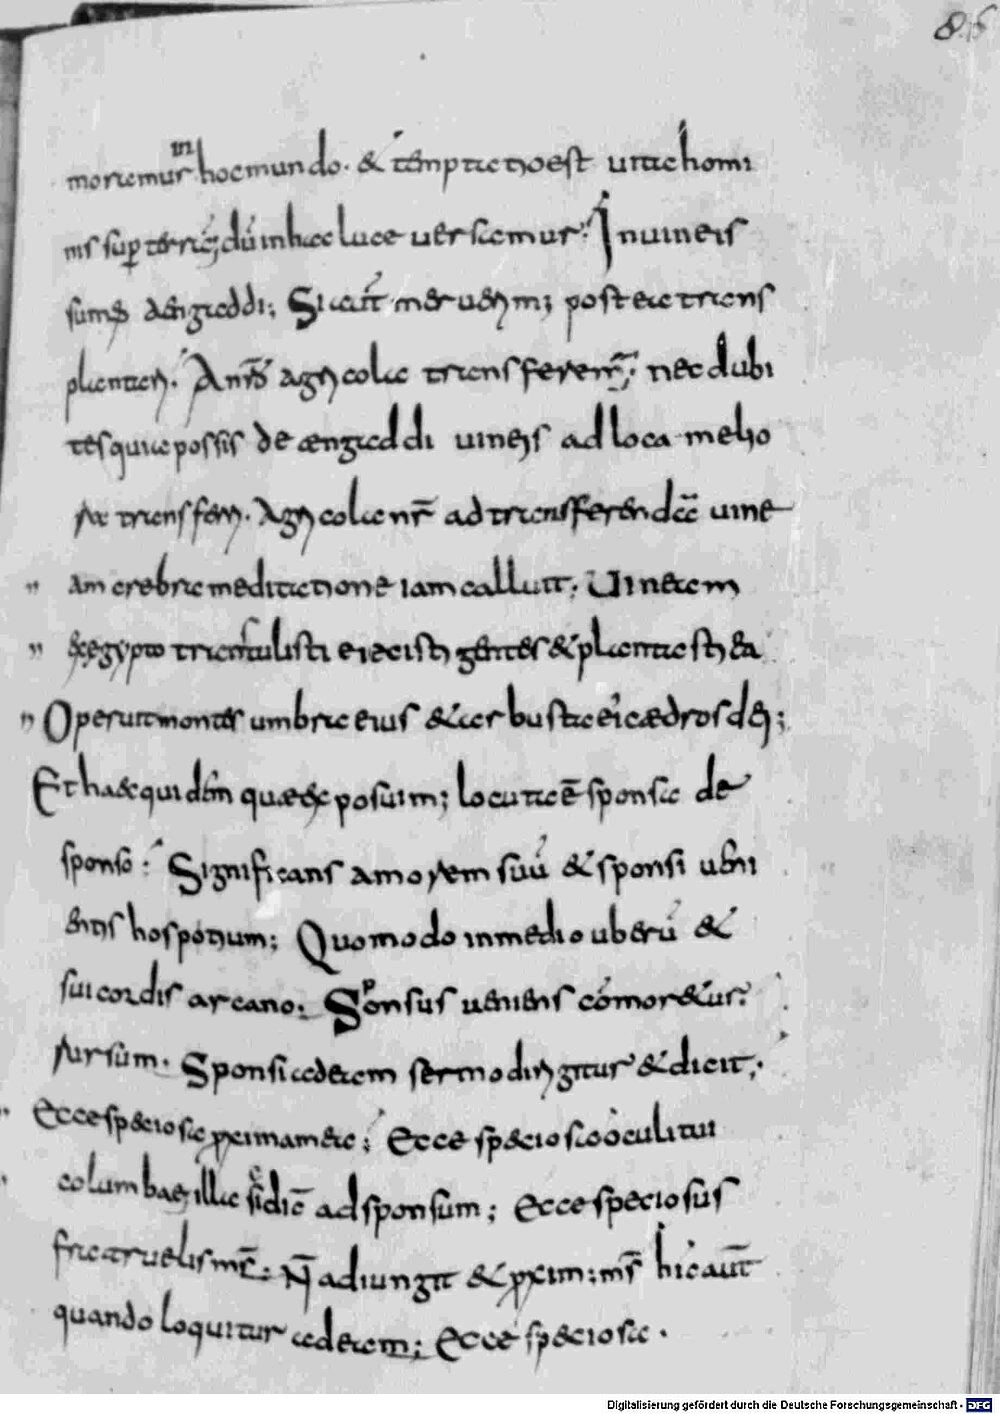 85
in
moriamur hoc mundo · & temptatio est uita homi
nis sup terrā; dū in hac luce uersamur; In uineis
sumus aengaddi; Sicut meruerim; post ea trans
plantari · A nrō agricola transferemr; nec dubi
tes qui ia possis de ængaddi uineis ad loca melio
ra transferri · Agricola nr̄ ad transferendā uine
„ am crebra meditatione iam calluit; Uineam
„ ex ęgypto transtulisti eiecisti gentes & plantasti ea
„ Operuit montes umbra eius & arbusta ei cædros dei;
Et haec quidem quæ exposuim; locuta ē sponsa de
sponso; Significans amorem suū & sponsi ueni
entis hospitium; Quomodo in medio uberū &
sui cordis arcano · Sponsus ueniens cōmoretur;
rursum · Sponsi ad eam sermo dirigitur & dicit;
„ Ecce speciosa proxima mea; Ecce speciosa oculi tui
„ columbae; illa sic dic̄ ad sponsum; Ecce speciosus
fratruelis ms̄; N̄ adiungit & proxim; ms̄ hic aut̄
quando loquitur ad eam; Ecce speciosa ·
Digitalisierung gefördert durch die Deutsche Forschungsgemeinschaft - DFG